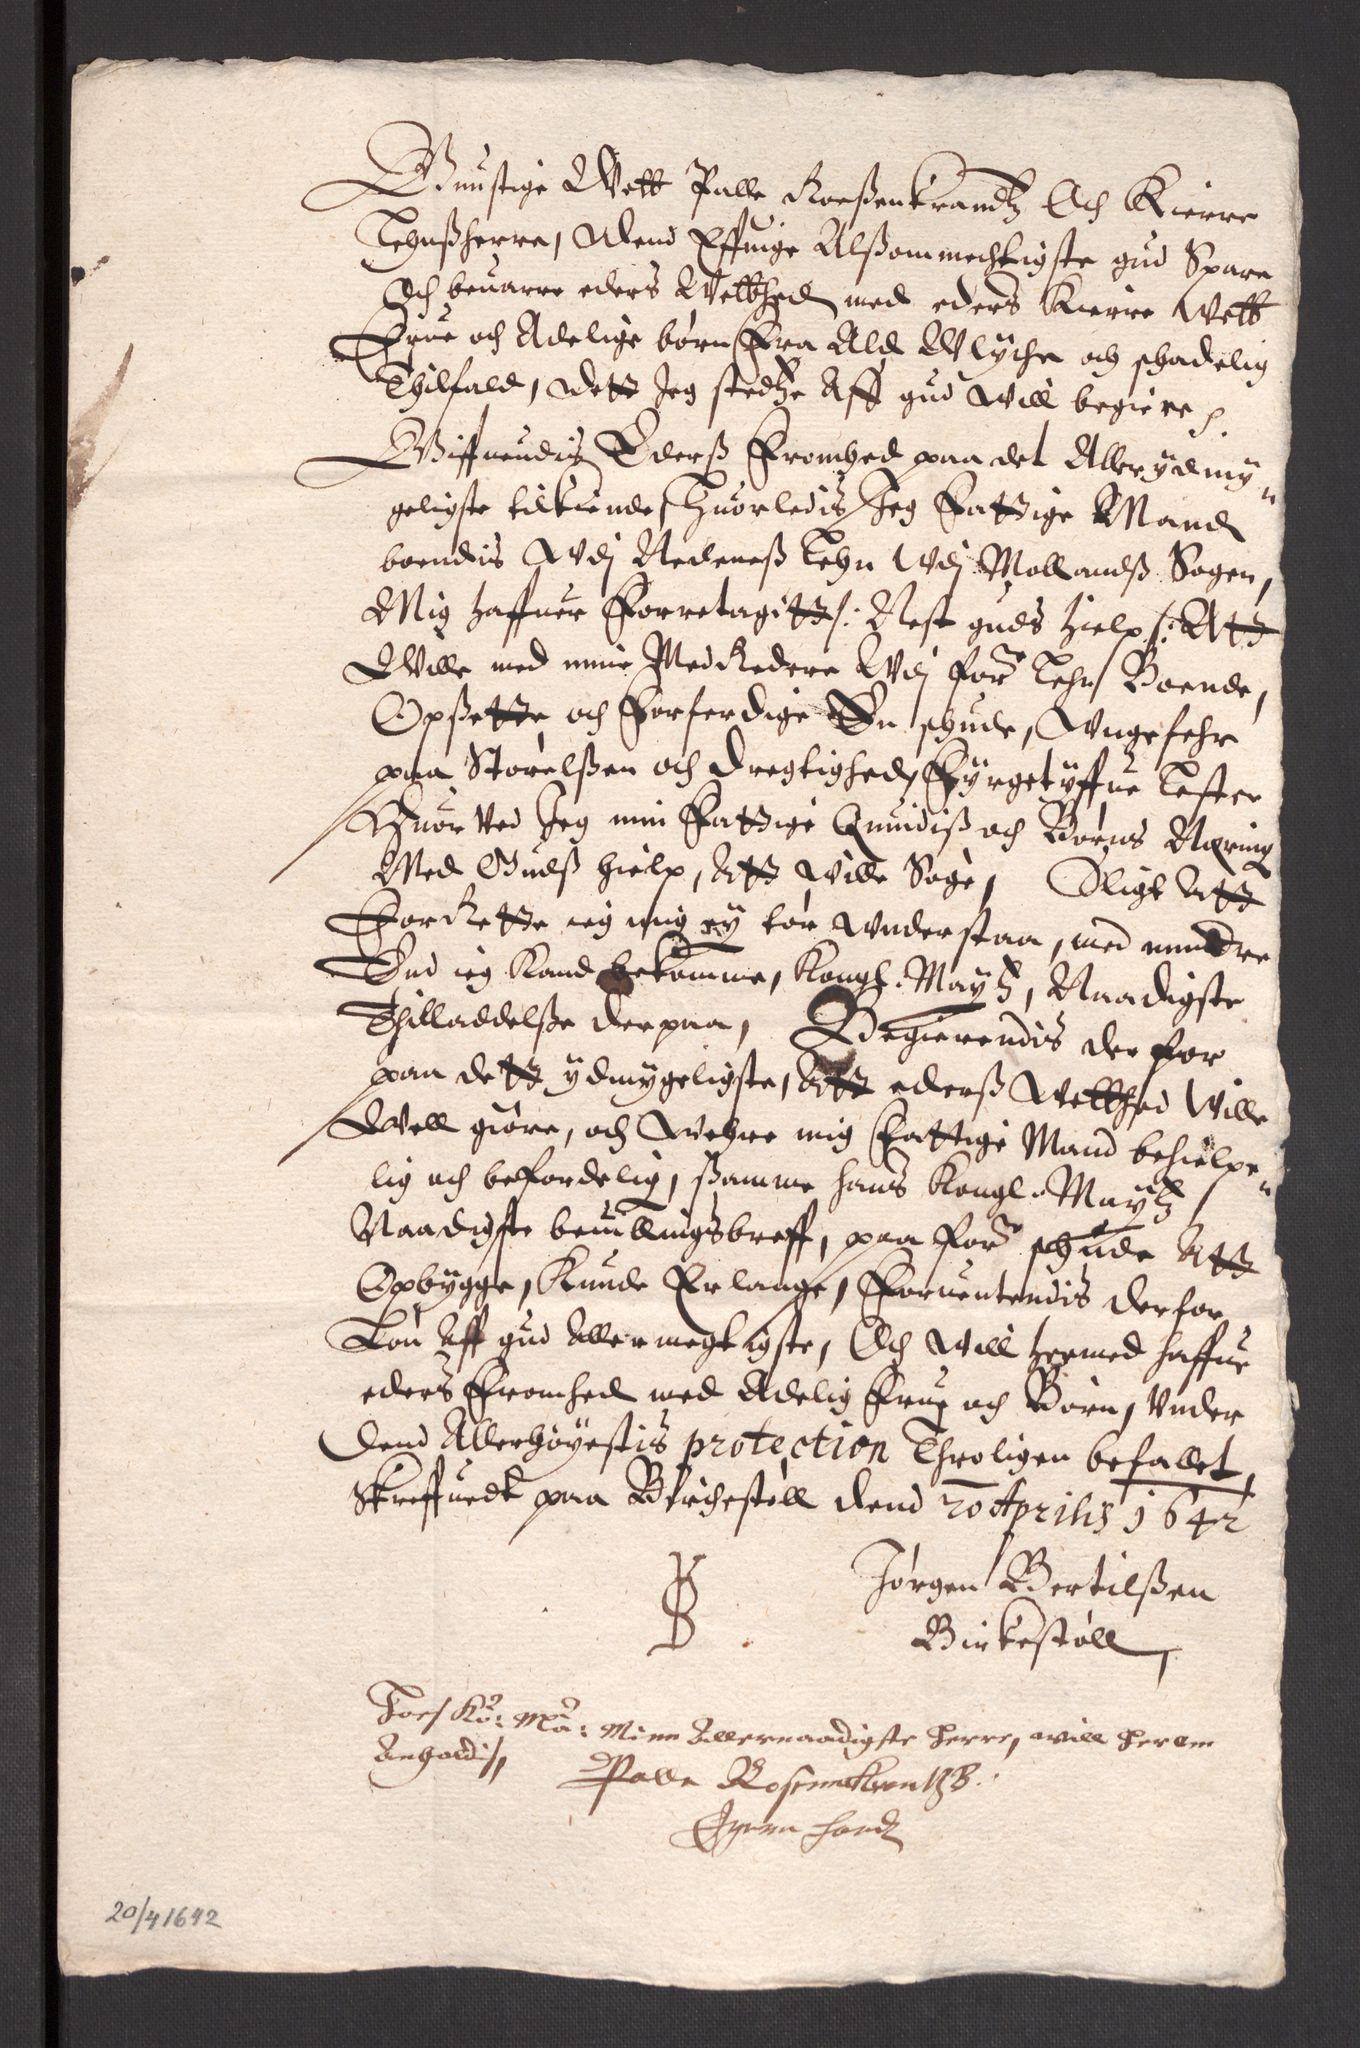 Gunstige Welb: Palle Roeßenkrandtz Och Kierre
Lehnßherre, Dend Effuige Alßommechtigste gud Spare
Och beuarre eders Welbhed med eders Kierre Welb
Frue och Adelige børn Fra Ald Wlyche och schadelig
Thilfald, dett Jeg stedtze Aff gud will begiere,
Giffuendis Ederß Fromhed paa det Allerydmy-
geligste tilkiende, Huorledis Jeg Fattige Mand
boendis Wdj Nedeneß Lehn Wdj Mollandß Sogen,
Mig haffuer Forretagitt /: Nest guds Hielp :/ Att
Wille med mine Med Redere Wdj for:ne Lehn Boende,
Opßette och Forferdige En schude, Wngefehr
paa Størelßen och dregtighed Fyrgetyffue Lester
Huor Ved Jeg min Fattige Quindiß och Børns Næring
Med Gudß Hielp, Att wille Søge, Sligt Att
For Rette ieg mig ey tør Wnderstaa, med mindre
End ieg Kand bekomme, Kongl: Maytz, Naadigste
Thilladdelße derpaa, Begierendis der for
paa dett ydmygeligste, Att ederß Welbhed Wille
Well giøre, och Wehre mig Fattige Mand behielpe-
lig och befordelig, ßamme hans Kongl: Maytz
Naadigste beuillingsbreff, paa for:ne schude Att
Opbygge, Kunde Erlange, Foruentendis derfor
Løn Aff gud Allermegtigste, Och will hermed haffue
eders Fromhed med Adelig Frue och Børn, Vnder
Dend Allerhøyestis protection Throligen befallet,
Skreffuedt paa Birchestøll dend 20 Aprilis 1642
IB
Jørgen Bertilßen
Birkestøll
Høes Kö: Mä: Minn Allernaadigste Herre, will herom
Anholdis,
Palle Rosennkrantz
Egenn Handt
20/4 1642